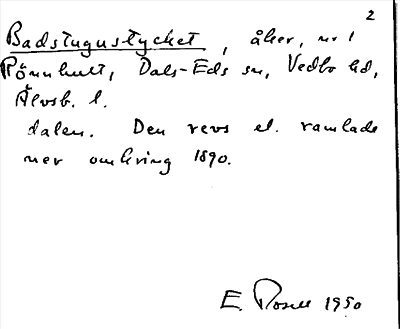 2
Badstugustycket, åker, nr 1
Rönnhult, Dals-Eds sn, Vedbo hd,
Älvsb. l.
dalen. Den revs el. ramlade
ner omkring 1890.
E. Rosell 1950